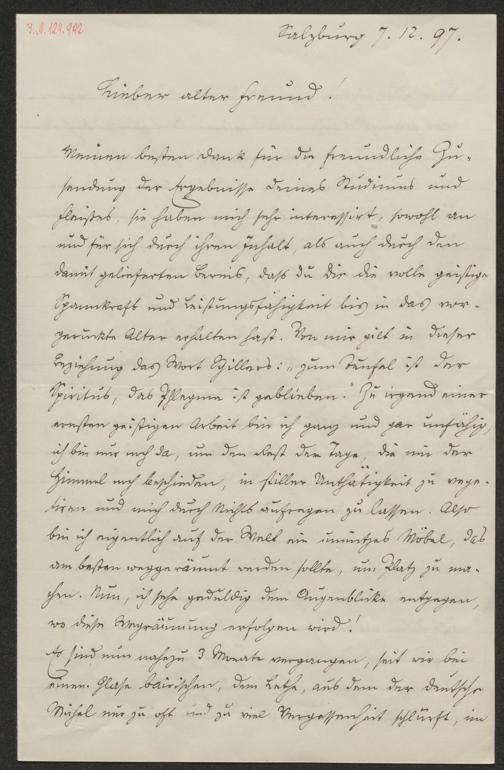 I. N. 129.992
Salzburg 7. 12. 97.
Lieber alter Freund!
Meinen besten Dank für die freundliche Zu-
sendung der Ergebnisse deines Studiums und
Fleißes, sie haben mich sehr interessirt, sowohl an
und für sich durch ihren Inhalt, als auch durch den
damit gelieferten Beweis, daß du dir die volle geistige
Spannkraft und Leistungsfähigkeit bis in das vor-
gerückte Alter erhalten hast. Von mir gilt in dieser
Beziehung das Wort Schillers: „zum Teufel ist der
Spiritus, das Phlegma ist geblieben." Zu irgend einer
ernsten geistigen Arbeit bin ich ganz und gar unfähig,
ich bin nur noch da, um den Rest der Tage, die mir der
Himmel noch beschieden, in stiller Unthätigkeit zu vege-
tiren und mich durch Nichts aufregen zu lassen. Also
bin ich eigentlich auf der Welt ein unnützes Möbel, das
am besten weggeräumt werden sollte, um Platz zu ma-
chen. Nun, ich sehe geduldig dem Augenblicke entgegen,
wo diese Wegräumung erfolgen wird!
Es sind nun nahezu 3 Monate vergangen, seit wir bei
einem Glase bairischen, dem Lethe, aus dem der deutsche
Michel nur zu oft und zu viel Vergessenheit schlürft, im